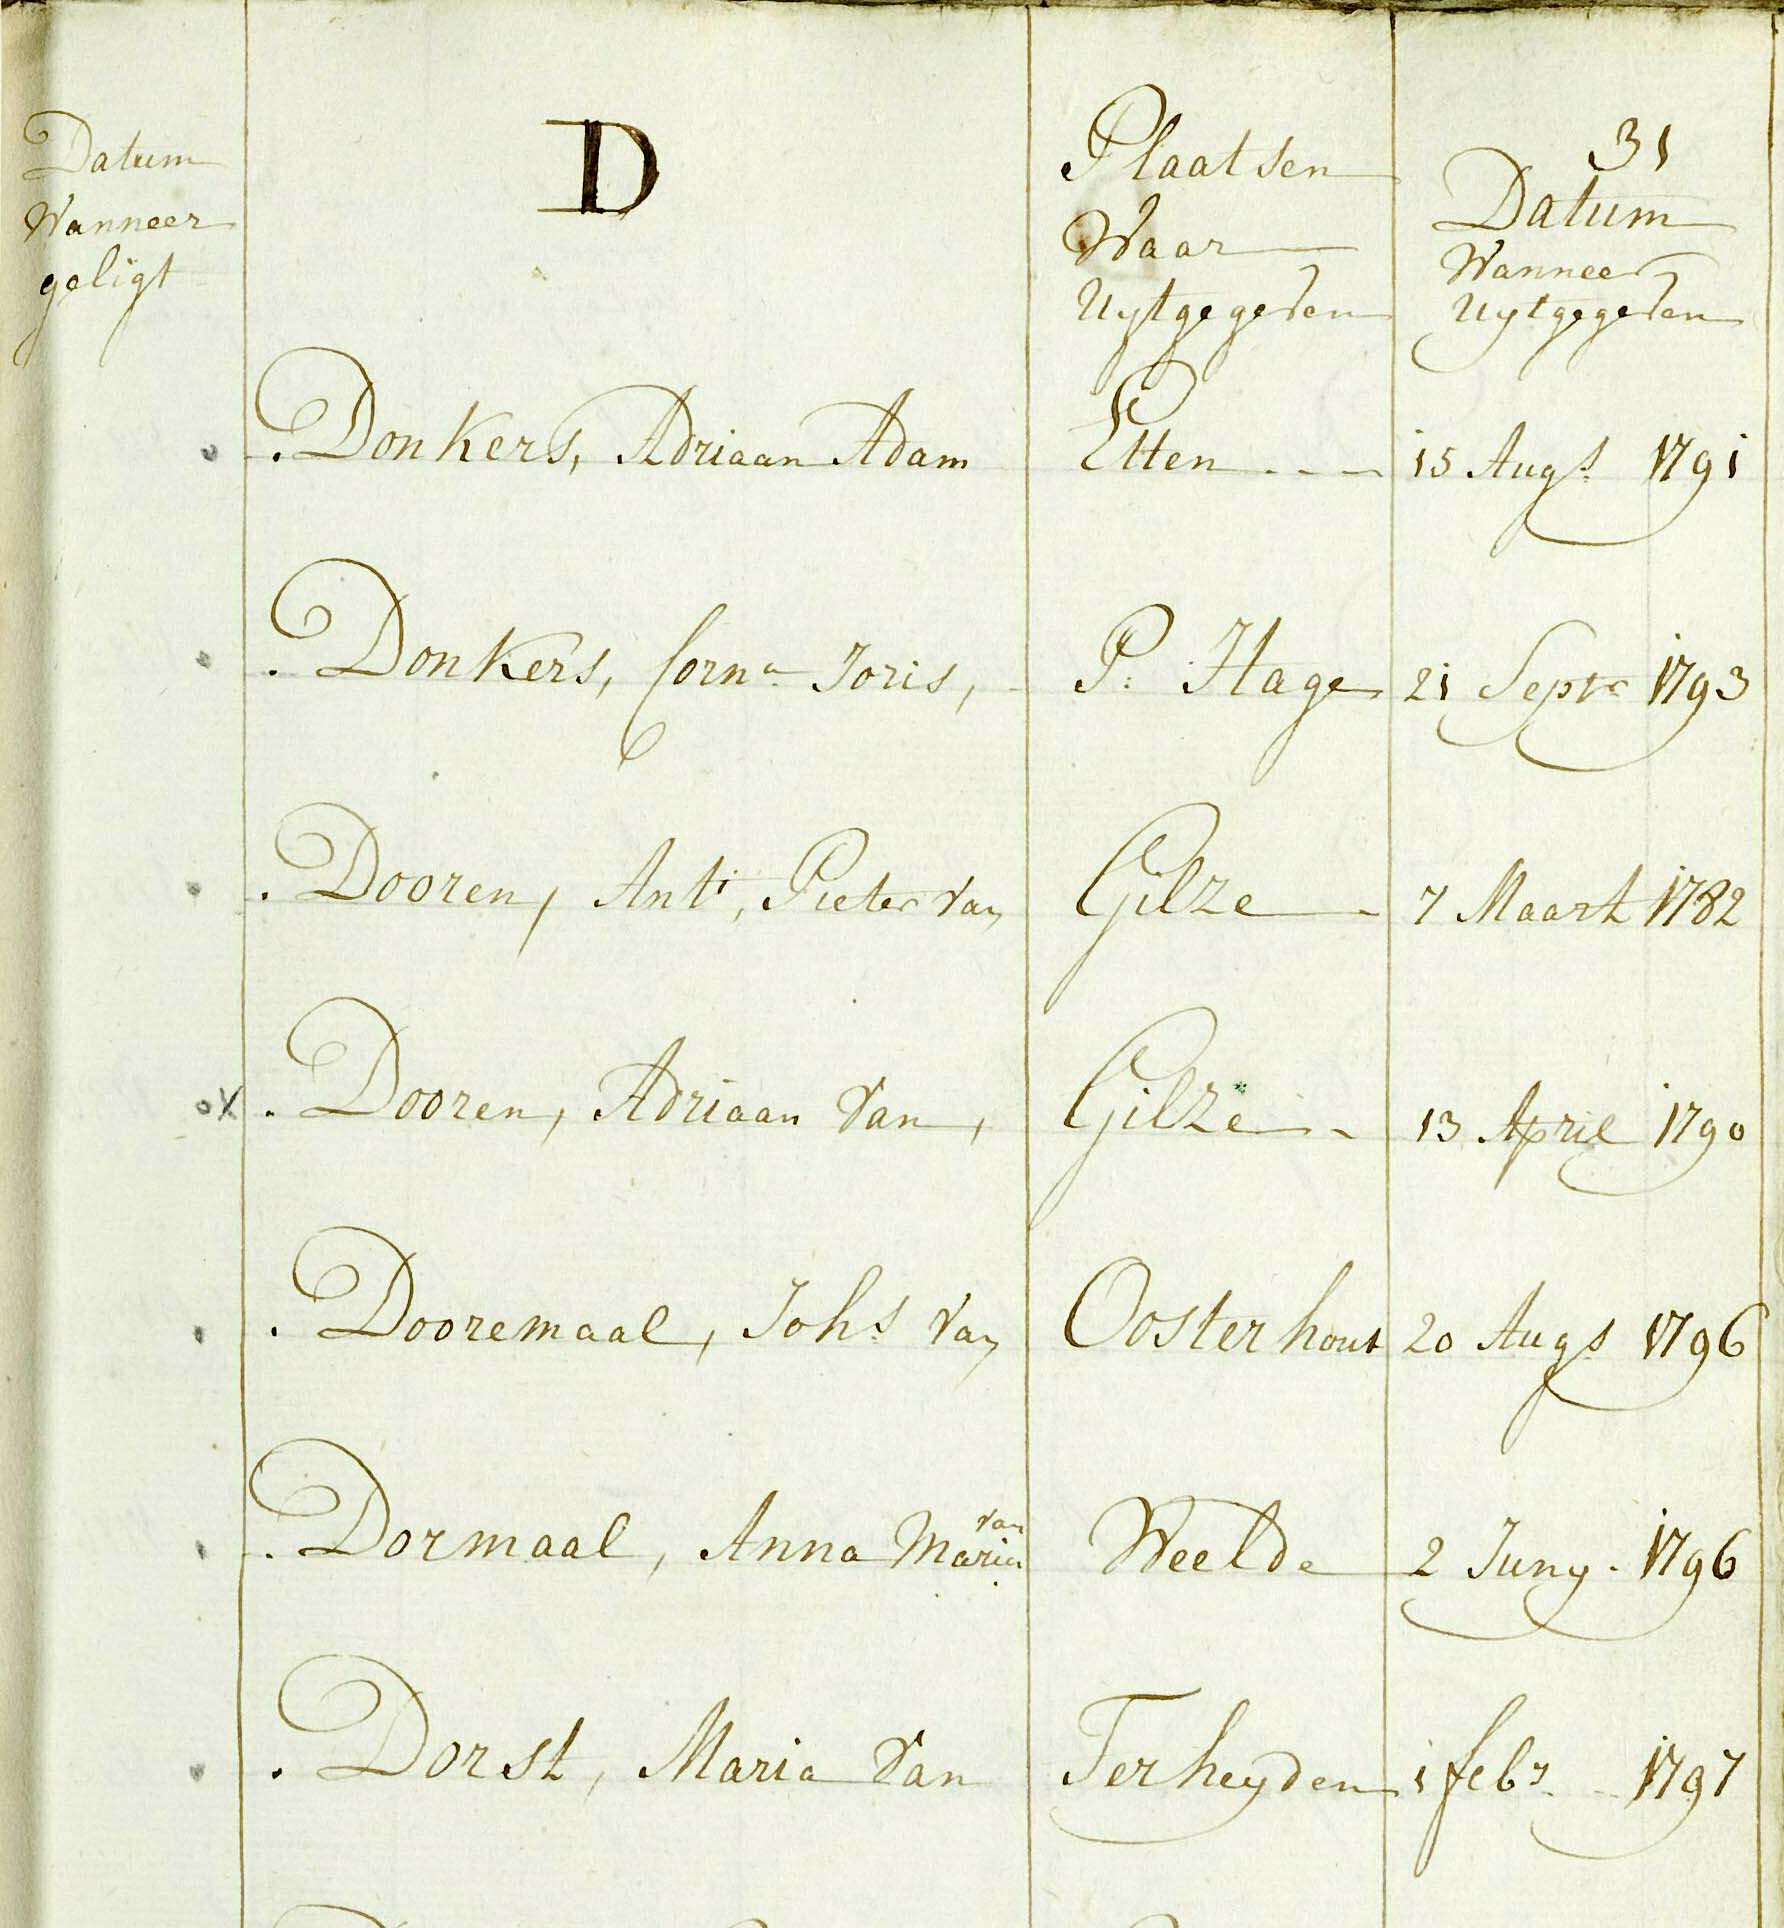 31
Datum
Wanneer
geligt
D
Plaatsen
Waar
Uytgegeven
Datum
Wanneer
Uytgegeven
Donkers, Adriaan Adam Etten 15 Augs. 1791
Donkers, Corna. Joris, P: Hage 21 Sepr 1793
Dooren, Anti, Pieter van Gilze 7 Maart 1782
ox Dooren, Adriaan van, Gilze 13 April 1790
Dooremaal, Johs. van Oosterhout 20 Augs 1796
Dormaal, Anna Maria van Weelde 2 Juny. 1796
Dorst, Maria van Terheyden 1 febr. 1797